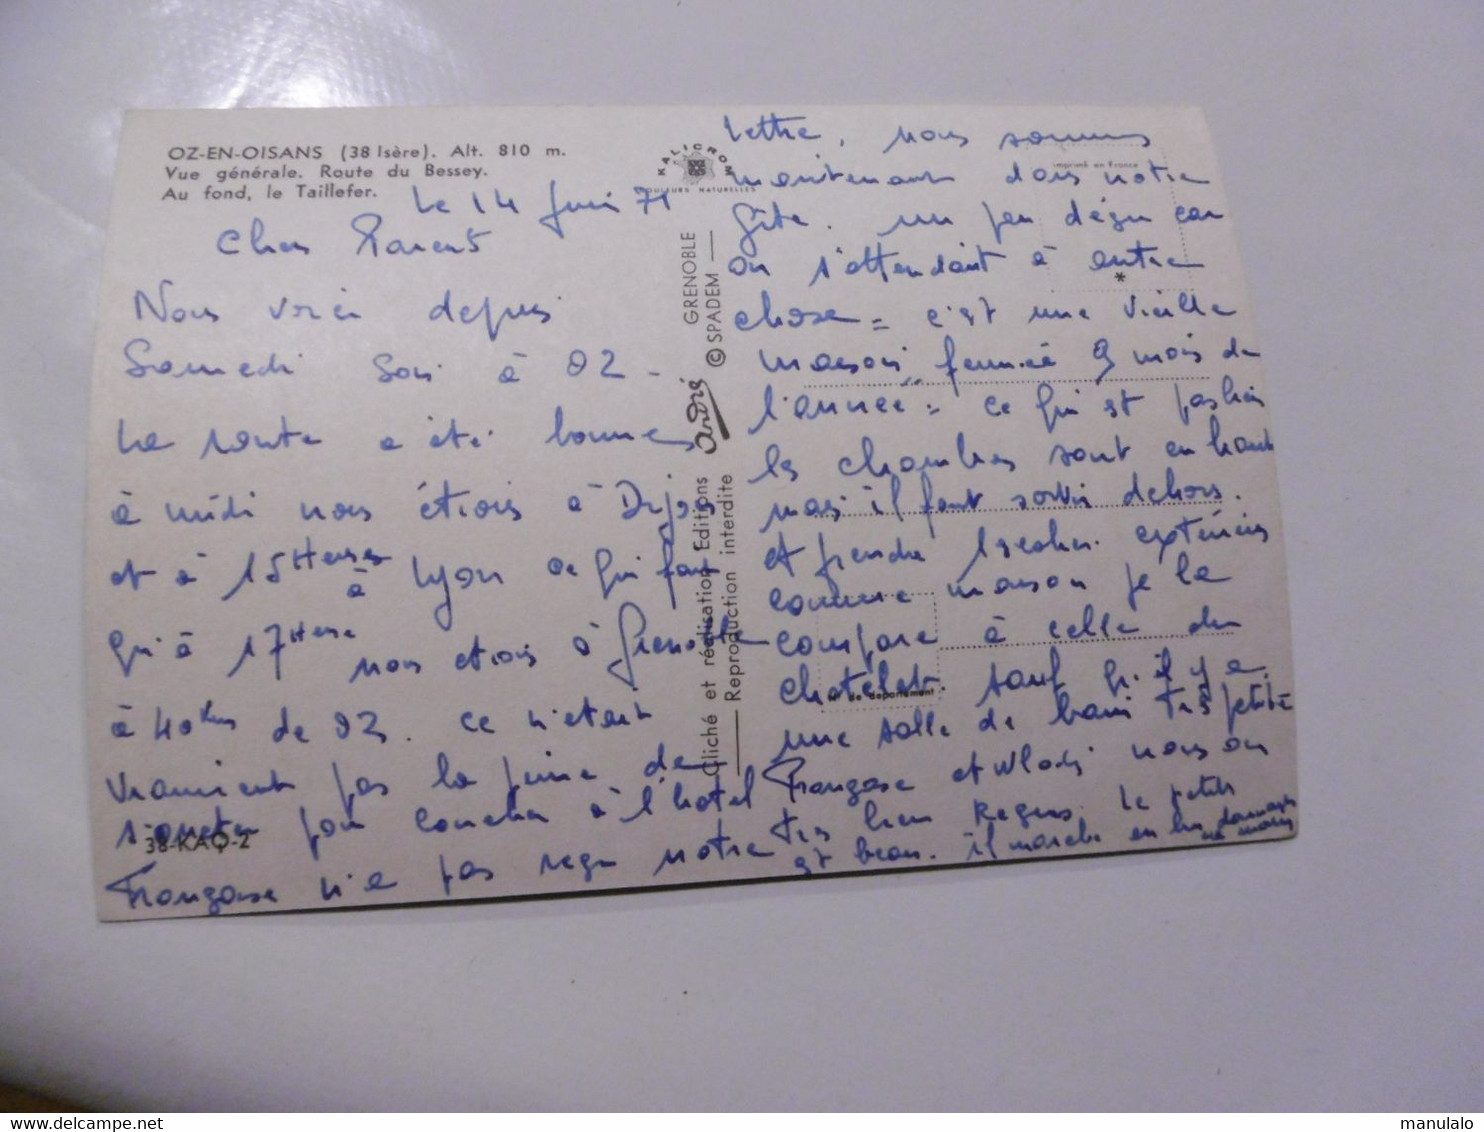 OZ-EN-OISANS (38 Isère). Alt. 810 m.
Vue générale. Route du Bessey.
Au fond, le Taillefer.
Le 14 Juin 71
Cher Parents
Nous voici depuis
Samedi Soir à OZ -
La route a été bonne
à midi nous étions à Dijon
et à 15 Heures à Lyon ce qui fait
qu'à 17 Heure nous etions à Grenoble
à 40 km de OZ. ce n'etait
vraiment pas la peine de
s'arreter pour coucher à l'hotel
Françoise n'a pas reçu notre
38-KAQ-2
KALICROM
COULEURS NATURELLES
Cliché et réalisation Editions André GRENOBLE
Reproduction interdite © SPADEM
imprimé en France
*
lettre, nous sommes
maintenant dans notre
gîte. un peu déçu car
on s'attendait à autre
chose = c'est une vieille
maison fermée 9 mois de
l'année = ce qui est
les chambres sont en haut
mais il faut sortir dehors.
et prendre extérieur
comme maison je la
compare à celle du
chatelet sauf qu'il y a
de département
une salle de bain très petite
Françoise et Wladi nous on
très bien reçus. Le petit
est beau. il marche en lui donnant
la main
manulalo